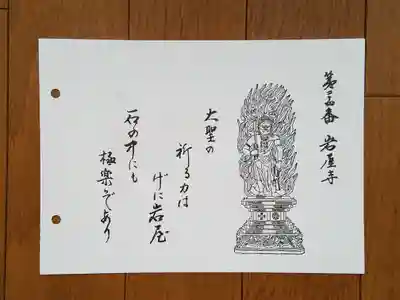 第 番 岩屋寺
大聖の
祈る力は
げに岩屋
石の中にも
極楽ぞあり